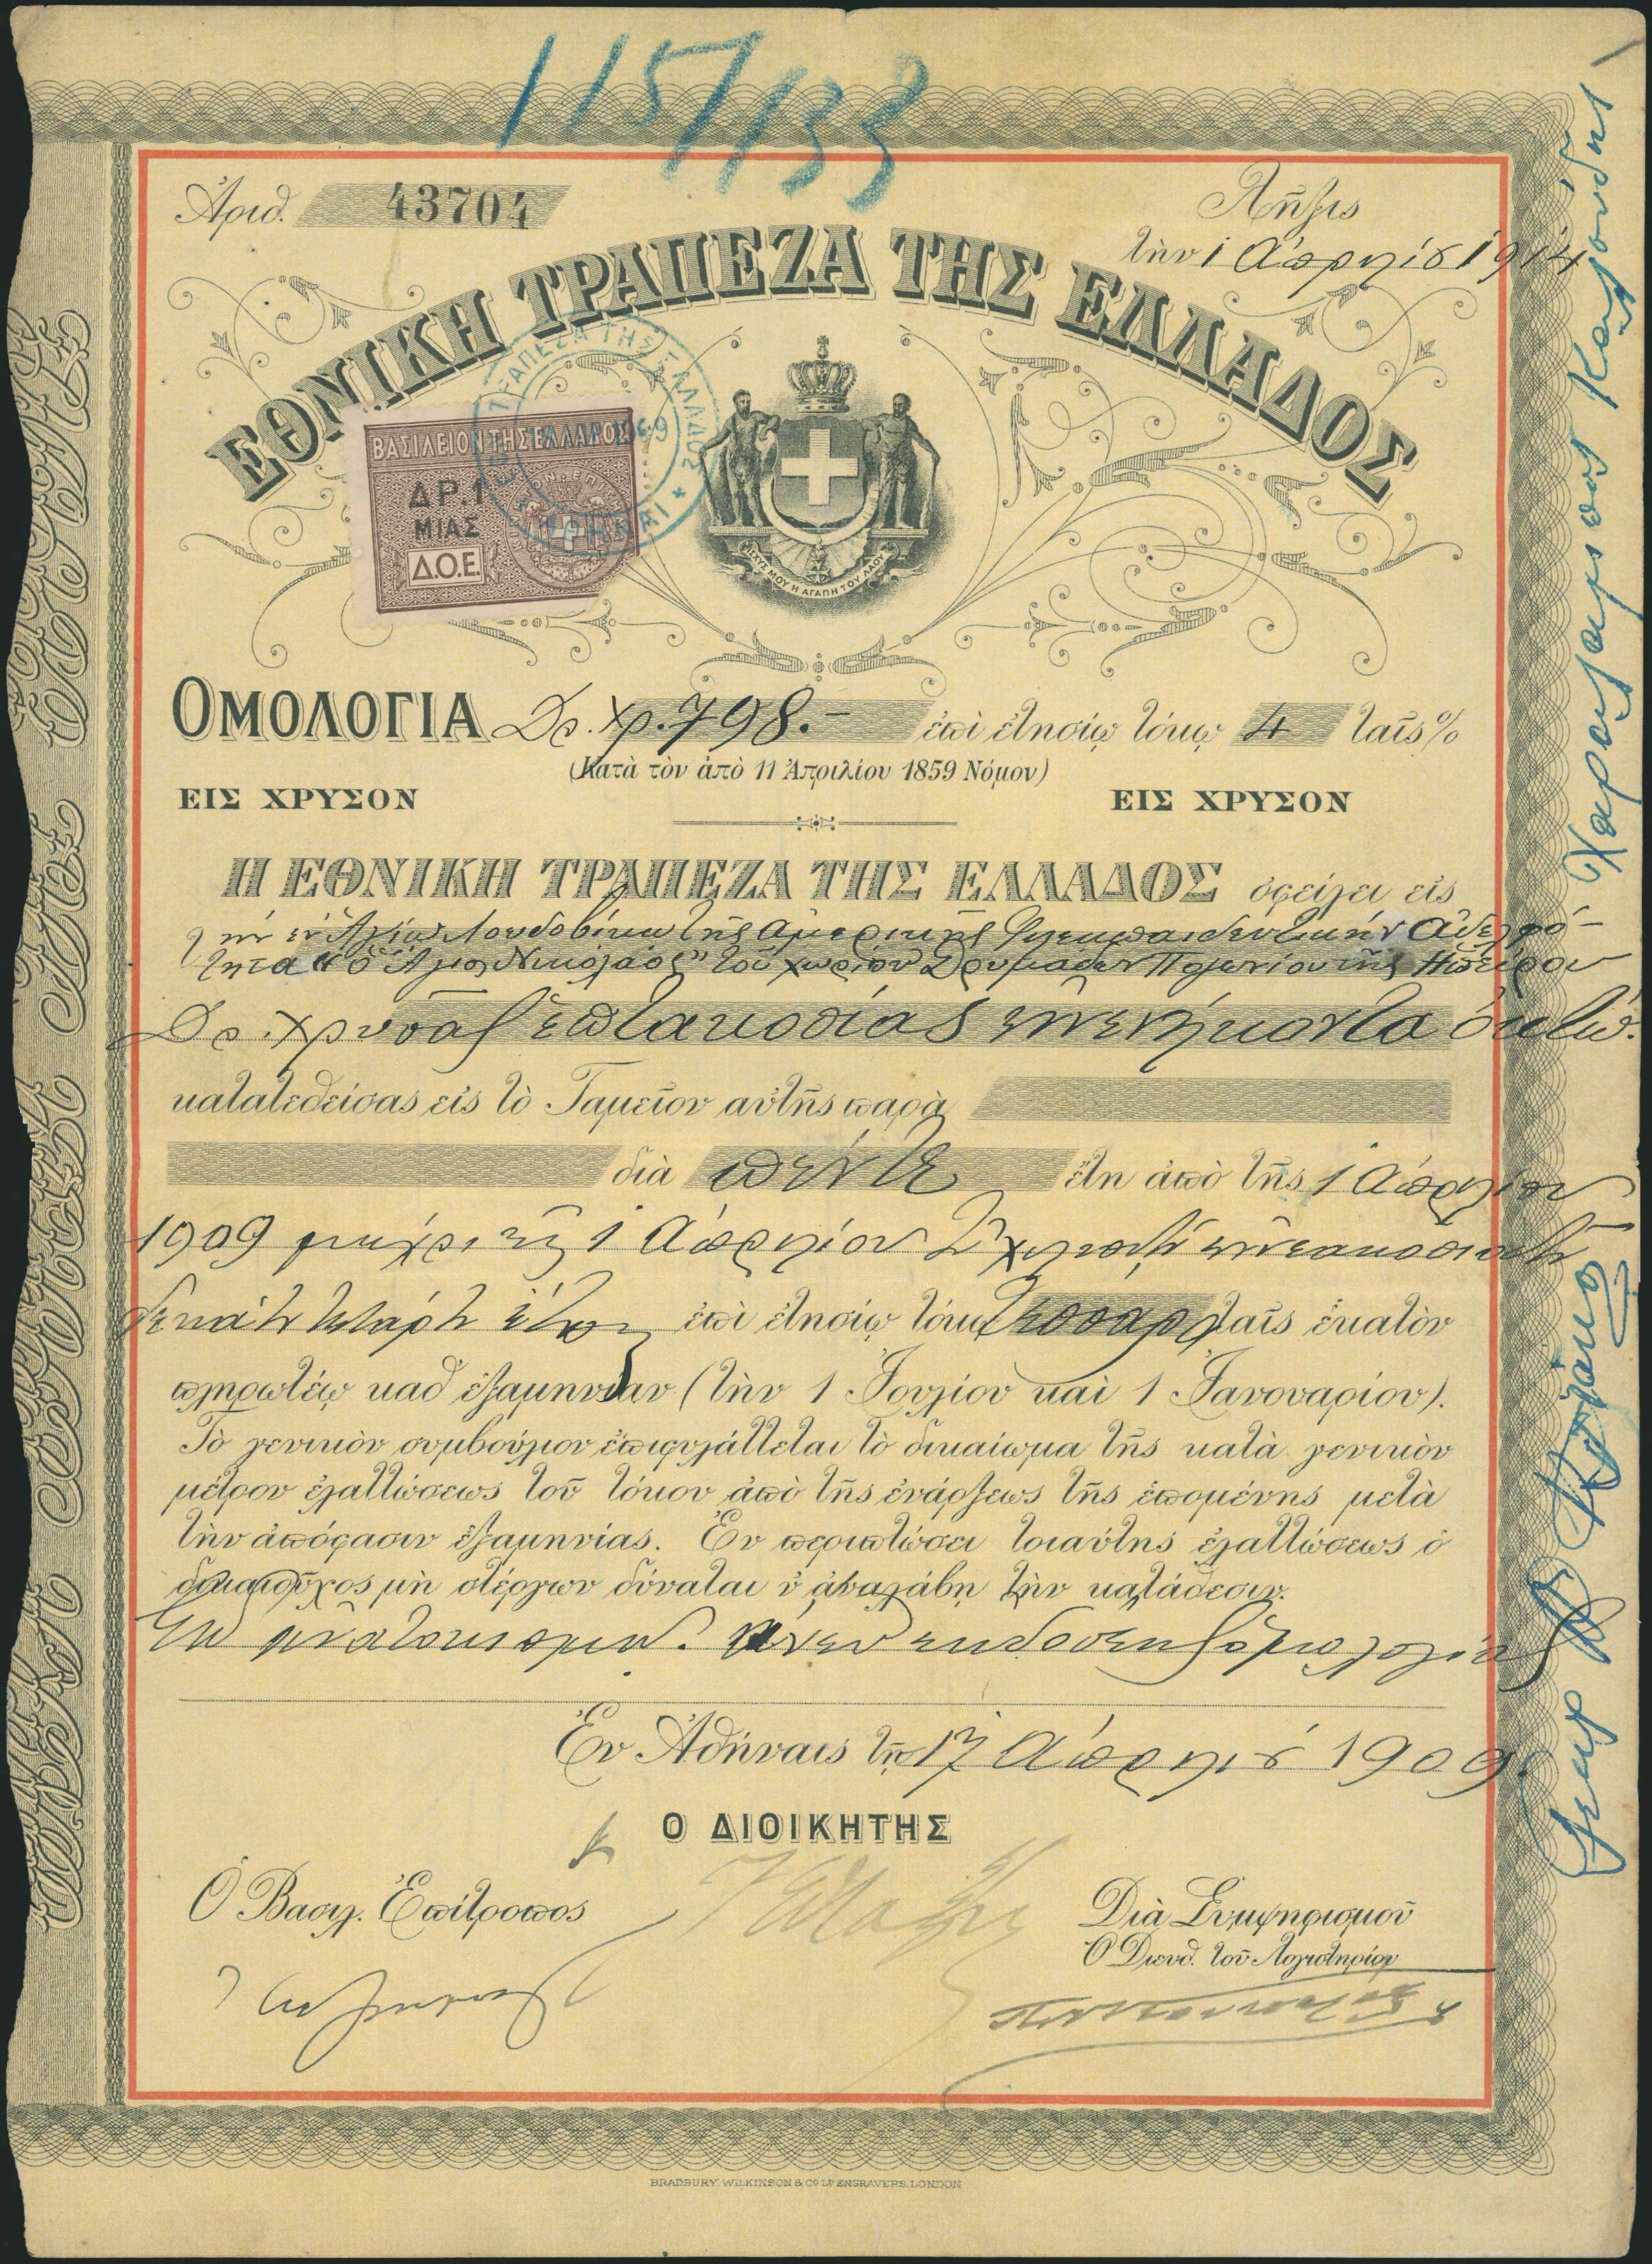 115/133
Ἀριθ. 43704
Λῆξις
τὴν 1 Ἀπριλίου 1914
ΕΘΝΙΚΗ ΤΡΑΠΕΖΑ ΤΗΣ ΕΛΛΑΔΟΣ
ΤΡΑΠΕΖΑ ΤΗΣ ΕΛΛΑΔΟΣ
ΒΑΣΙΛΕΙΟΝ ΤΗΣ ΕΛΛΑΔΟΣ
ΔΡ.1
ΜΙΑΣ
Δ.Ο.Ε.
ΙΣΧΥΣ ΜΟΥ Η ΑΓΑΠΗ ΤΟΥ ΛΑΟΥ
ΟΜΟΛΟΓΙΑ Δρ. χρ. 798.- ἐπὶ ἐτησίῳ τόκῳ 4 τοῖς %
(Κατὰ τὸν ἀπὸ 11 Ἀπριλίου 1859 Νόμον)
ΕΙΣ ΧΡΥΣΟΝ ΕΙΣ ΧΡΥΣΟΝ
Η ΕΘΝΙΚΗ ΤΡΑΠΕΖΑ ΤΗΣ ΕΛΛΑΔΟΣ ὀφείλει εἰς
τὴν ἐν Ἁγίῳ Λουδοβίκῳ τῆς Ἀμερικῆς Φιλεκπαιδευτικὴν Ἀδελφό-
τητα "ὁ Ἅγιος Νικόλαος" τοῦ χωρίου Δρυμάδων Πωγωνίου τῆς Ἠπείρου
Δρ. χρυσᾶς ἑπτακοσίας ἐννενήκοντα ὀκτώ.
κατατεθείσας εἰς τὸ Ταμεῖον αὐτῆς παρὰ
διὰ πέντε ἔτη ἀπὸ τῆς 1 Ἀπριλίου
1909 μέχρι τῆς 1 Ἀπριλίου χιλιοστοῦ ἐννεακοσιοστοῦ
δεκάτου τετάρτου ἔτους ἐπὶ ἐτησίῳ τόκῳ τέσσαρα τοῖς ἑκατὸν
πληρωτέῳ καθ' ἑξαμηνίαν (τὴν 1 Ἰουλίου καὶ 1 Ἰανουαρίου).
Τὸ γενικὸν συμβούλιον ἐπιφυλάττεται τὸ δικαίωμα τῆς κατὰ γενικὸν
μέτρον ἐλαττώσεως τοῦ τόκου ἀπὸ τῆς ἐνάρξεως τῆς ἑπομένης μετὰ
τὴν ἀπόφασιν ἑξαμηνίας. Ἐν περιπτώσει τοιαύτης ἐλαττώσεως ὁ
δικαιοῦχος μὴ στέργων δύναται ν' ἀναλάβῃ τὴν κατάθεσιν.
ἀνατοκισμῷ. ἄνευ ἐκδόσεως ὁμολογίας
Ἐν Ἀθήναις τῇ 17 Ἀπριλίου 1909.
Ο ΔΙΟΙΚΗΤΗΣ
Ὁ Βασιλ. Ἐπίτροπος
Διὰ Συμψηφισμοῦ
Ὁ Διευθ. τοῦ Λογιστηρίου
Χαράλαμπος
BRADBURY. WILKINSON & Cº Lº ENGRAVERS. LONDON